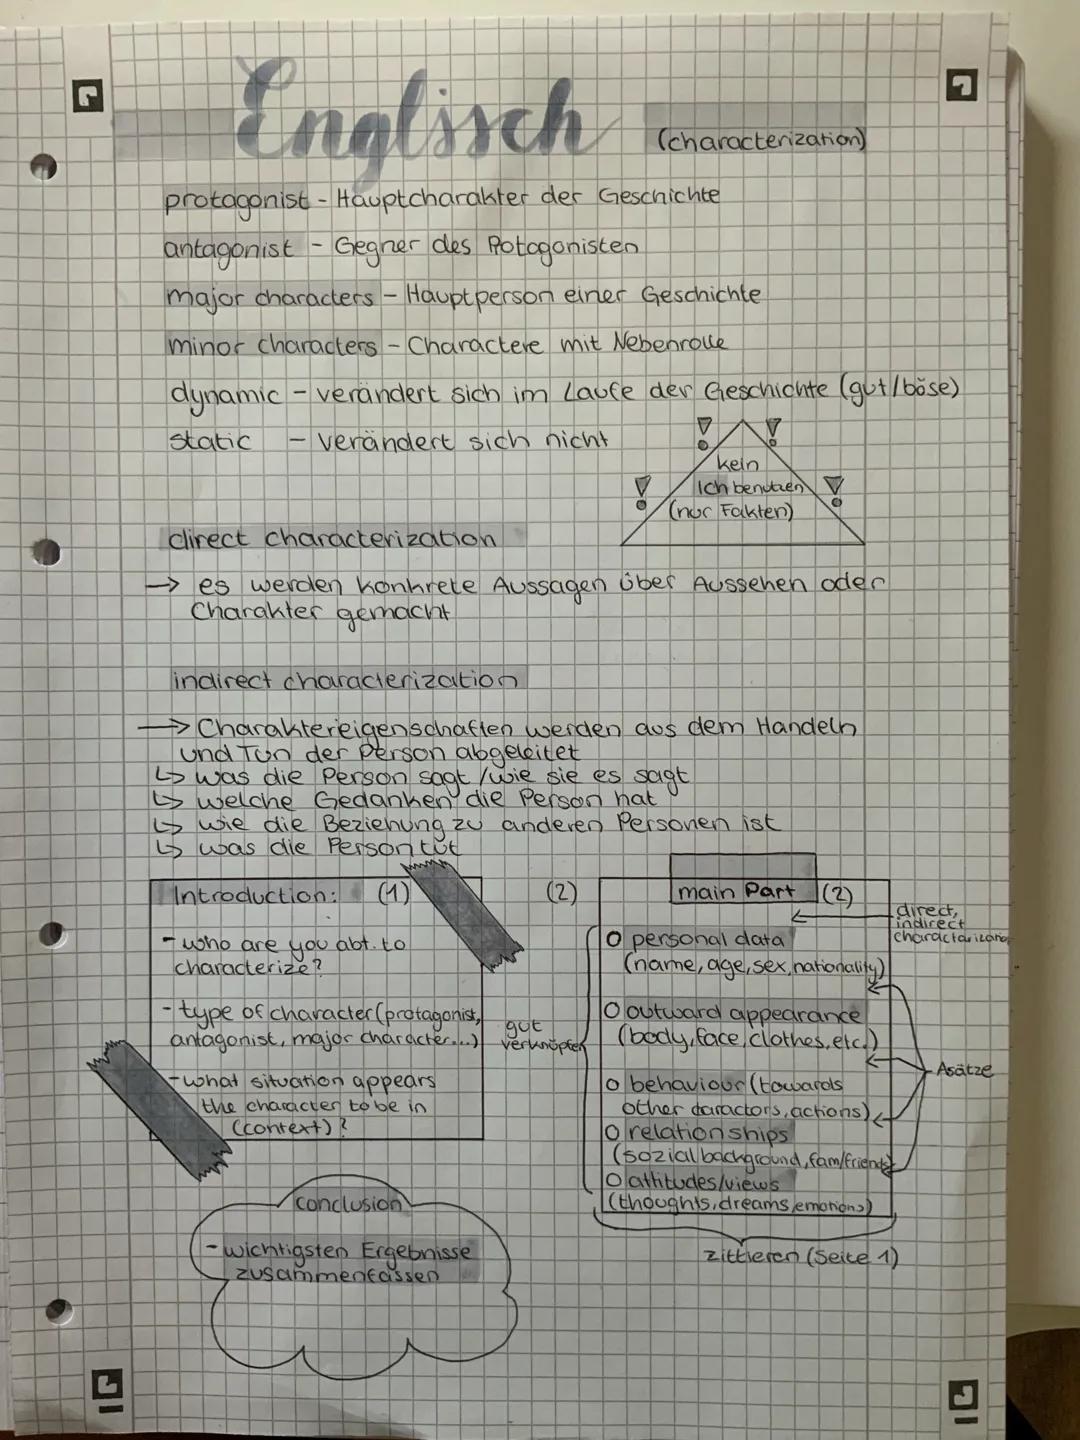 Englisch (characterization)
protagonist - Hauptcharakter der Geschichte
antagonist - Gegner des Potogonisten
major characters - Hauptperson einer Geschichte
minor characters - Charactere mit Nebenrolle
dynamic - verändert sich im Laufe der Geschichte (gut/böse)
static - verändert sich nicht
kein
Ich benutzen
(nur Fakten)
direct characterization
→ es werden konkrete Aussagen über Aussehen oder
Charakter gemacht
indirect characterization
→ Charaktereigenschaften werden aus dem Handeln
und Tun der Person abgeleitet
↳ was die Person sagt / wie sie es sagt
↳ welche Gedanken die Person hat
↳ wie die Beziehung zu anderen Personen ist
↳ was die Person tut
Introduction: (1)
- who are you abt. to
characterize?
- type of character (protagonist,
antagonist, major character...)
- what situation appears
the character to be in
(context)?
(2)
gut
verknüpfen
main Part (2)
direct,
indirect
characterization
o personal data
(name, age, sex, nationality)
o outward appearance
(body, face, clothes, etc.)
o behaviour (towards
other daractors, actions)
o relationships
(sozial background, fam/friends)
o attitudes/views
(thoughts, dreams, emotions)
Asätze
zittieren (Seite 1)
conclusion
- wichtigsten Ergebnisse
zusammenfassen